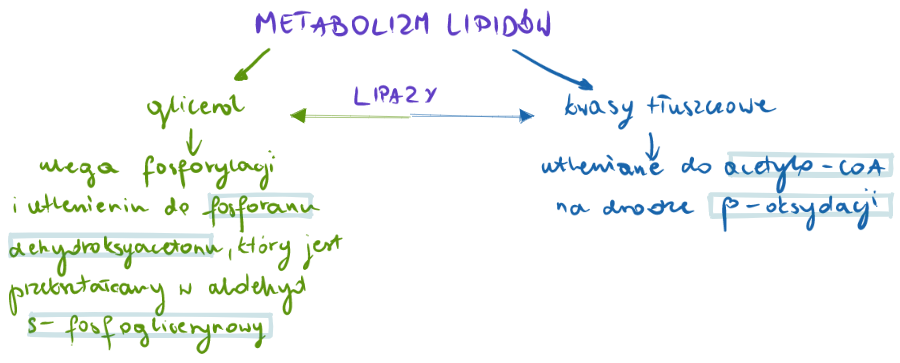 METABOLIZM LIPIDÓW
LIPAZY
glicerol
ulega fosforylacji
i utlenieniu do fosforanu
dehydroksyacetonu, który jest
przekształcany w aldehyd
3-fosfoglicerynowy
kwasy tłuszczowe
utleniane do acetylo-CoA
na drodze β-oksydacji